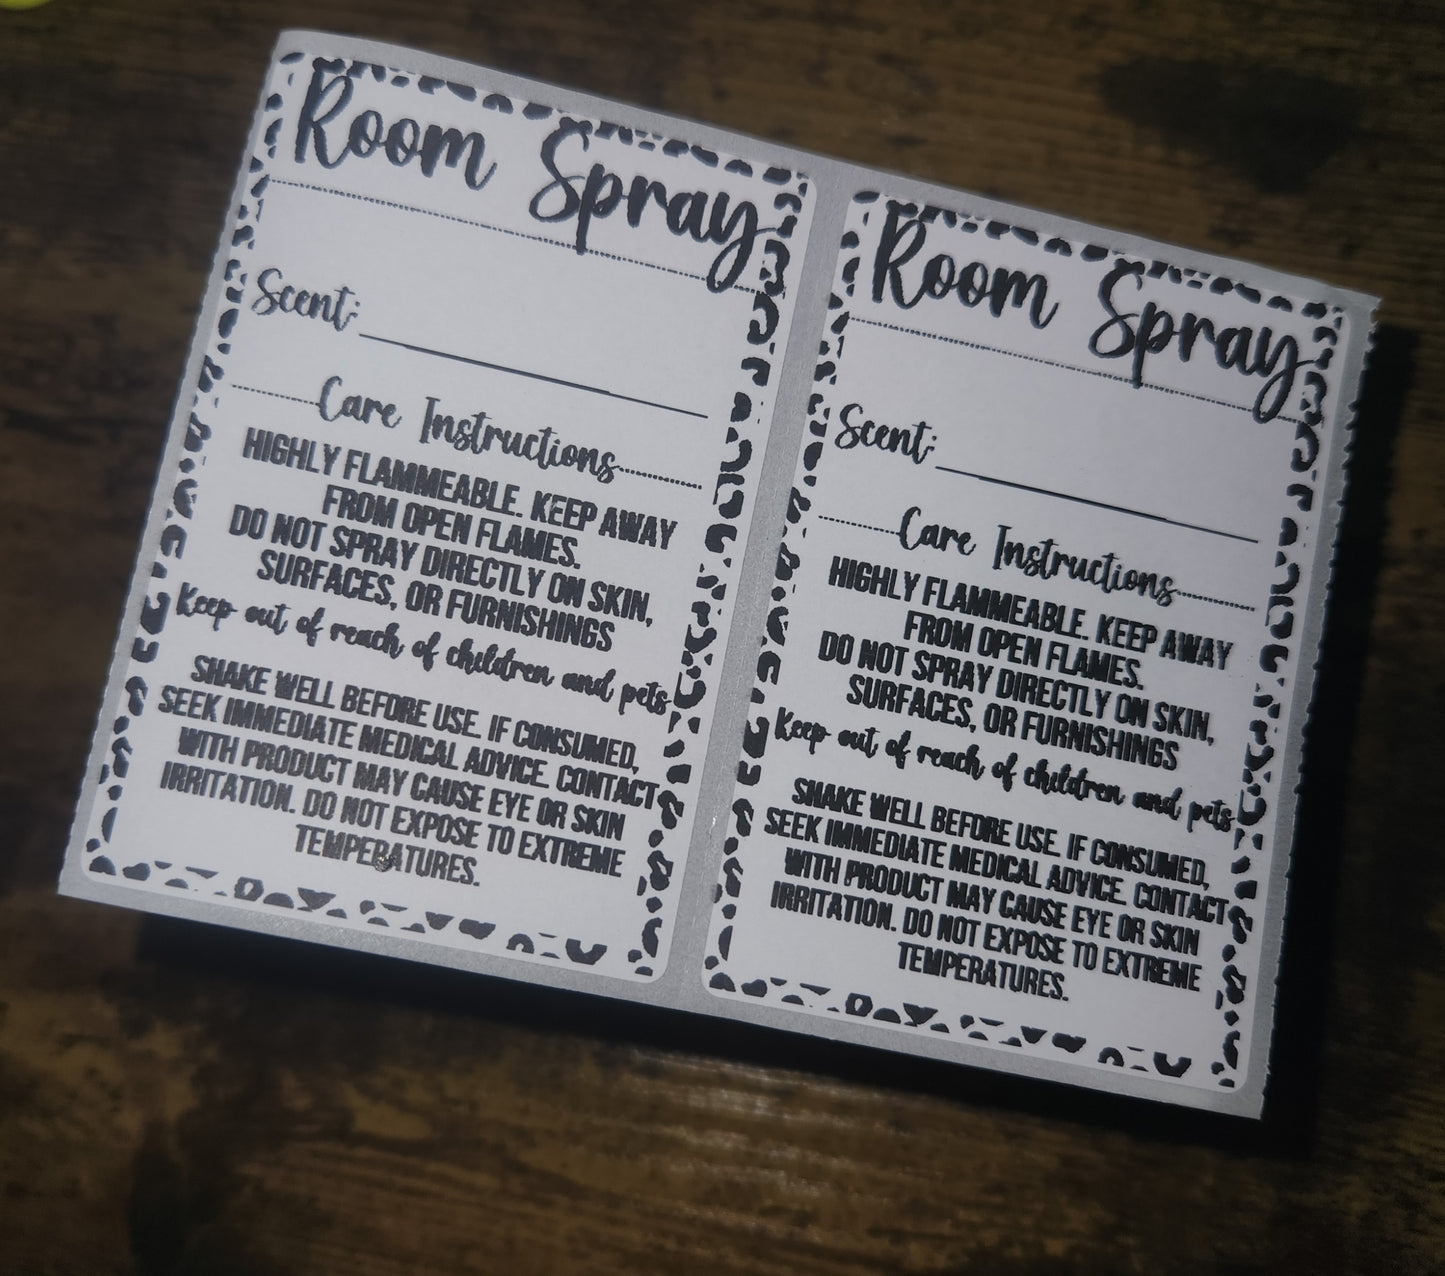 Room Spray
Scent:
Care Instructions
HIGHLY FLAMMEABLE. KEEP AWAY
FROM OPEN FLAMES.
DO NOT SPRAY DIRECTLY ON SKIN,
SURFACES, OR FURNISHINGS
Keep out of reach of children and pets
SHAKE WELL BEFORE USE. IF CONSUMED,
SEEK IMMEDIATE MEDICAL ADVICE. CONTACT
WITH PRODUCT MAY CAUSE EYE OR SKIN
IRRITATION. DO NOT EXPOSE TO EXTREME
TEMPERATURES.
Room Spray
Scent:
Care Instructions
HIGHLY FLAMMEABLE. KEEP AWAY
FROM OPEN FLAMES.
DO NOT SPRAY DIRECTLY ON SKIN,
SURFACES, OR FURNISHINGS
Keep out of reach of children and pets
SHAKE WELL BEFORE USE. IF CONSUMED,
SEEK IMMEDIATE MEDICAL ADVICE. CONTACT
WITH PRODUCT MAY CAUSE EYE OR SKIN
IRRITATION. DO NOT EXPOSE TO EXTREME
TEMPERATURES.